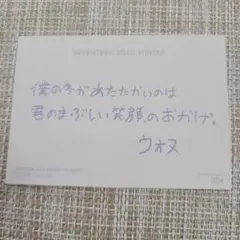 僕の冬があたたかいのは
君のまぶしい笑顔のおかげ。
ウォヌ